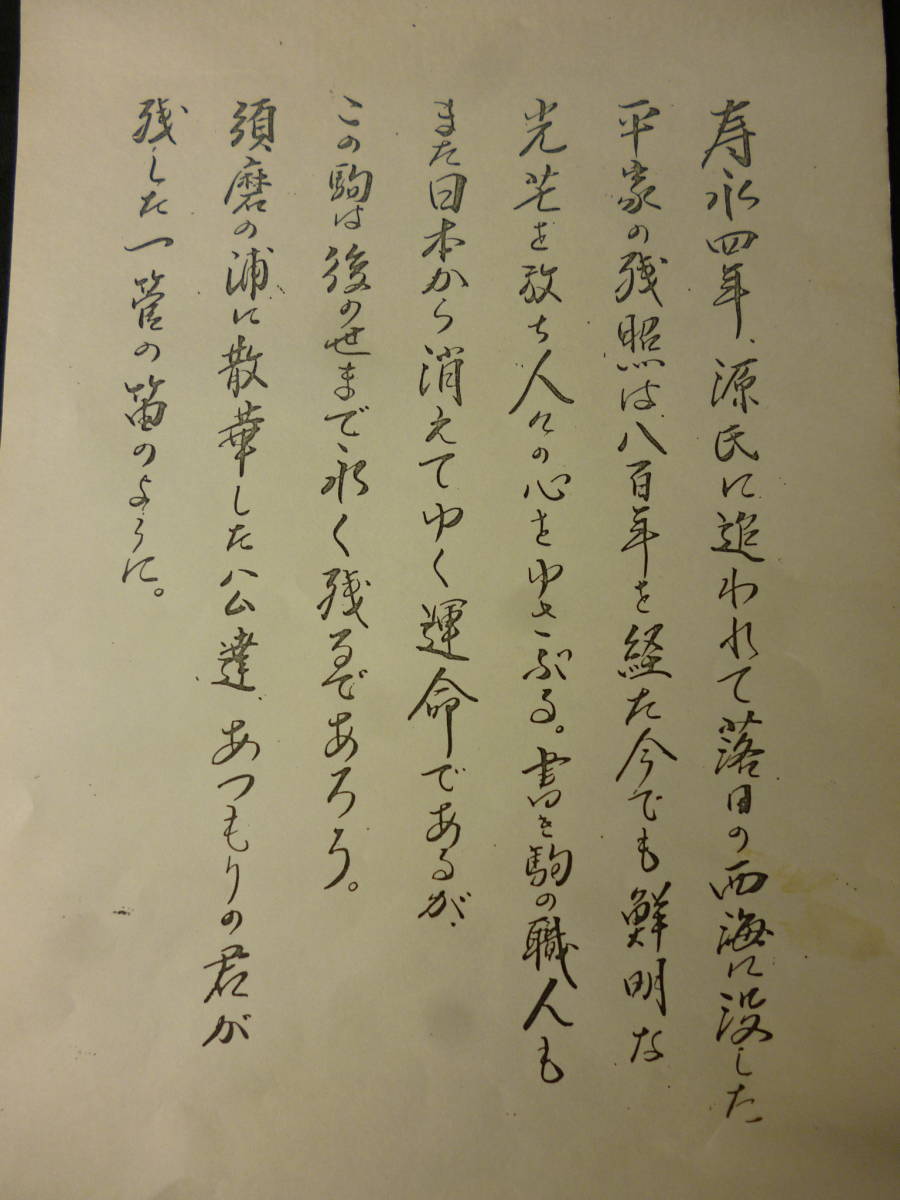 寿永四年、源氏に追われて落日の西海に没した
平家の残照は、八百年を経た今でも鮮明な
光芒を放ち人々の心をゆさぶる。書き駒の職人も
また日本から消えてゆく運命であるが、
この駒は後の世まで永く残るであろう。
須磨の浦に散華した公達、あつもりの君が
残した一管の笛のように。